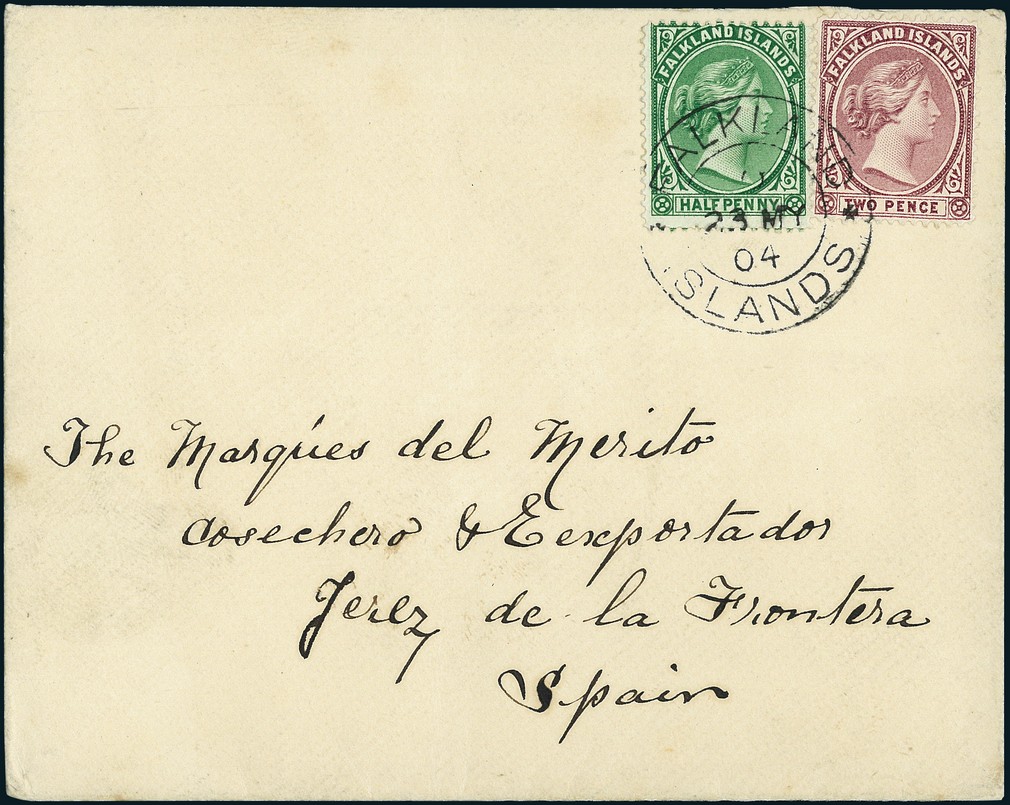 FALKLAND ISLANDS
HALF PENNY
FALKLAND ISLANDS
TWO PENCE
FALKLAND
23 MY
04
ISLANDS
The Marqúes del Merito
Cosechero & Eexportador
Jerez de la Frontera
Spain